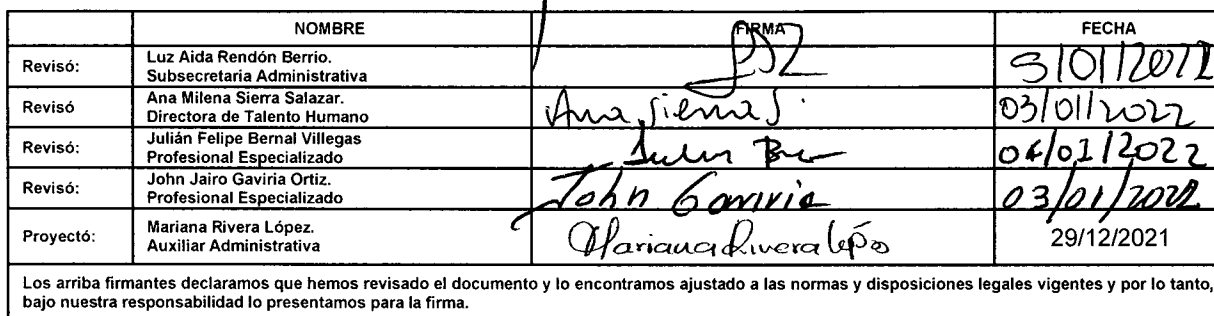 NOMBRE FIRMA FECHA
Revisó: Luz Aida Rendón Berrio.
Subsecretaria Administrativa
5/01/2022
Revisó Ana Milena Sierra Salazar.
Directora de Talento Humano
Ana Sierra S. 03/01/2022
Revisó: Julián Felipe Bernal Villegas
Profesional Especializado
04/01/2022
Revisó: John Jairo Gaviria Ortiz.
Profesional Especializado
John Gaviria 03/01/2022
Proyectó: Mariana Rivera López.
Auxiliar Administrativa
Mariana Rivera López 29/12/2021
Los arriba firmantes declaramos que hemos revisado el documento y lo encontramos ajustado a las normas y disposiciones legales vigentes y por lo tanto,
bajo nuestra responsabilidad lo presentamos para la firma.